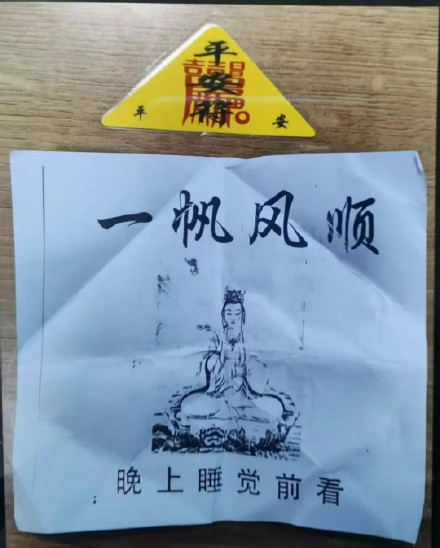 平安符
平 安
一帆风顺
晚上睡觉前看